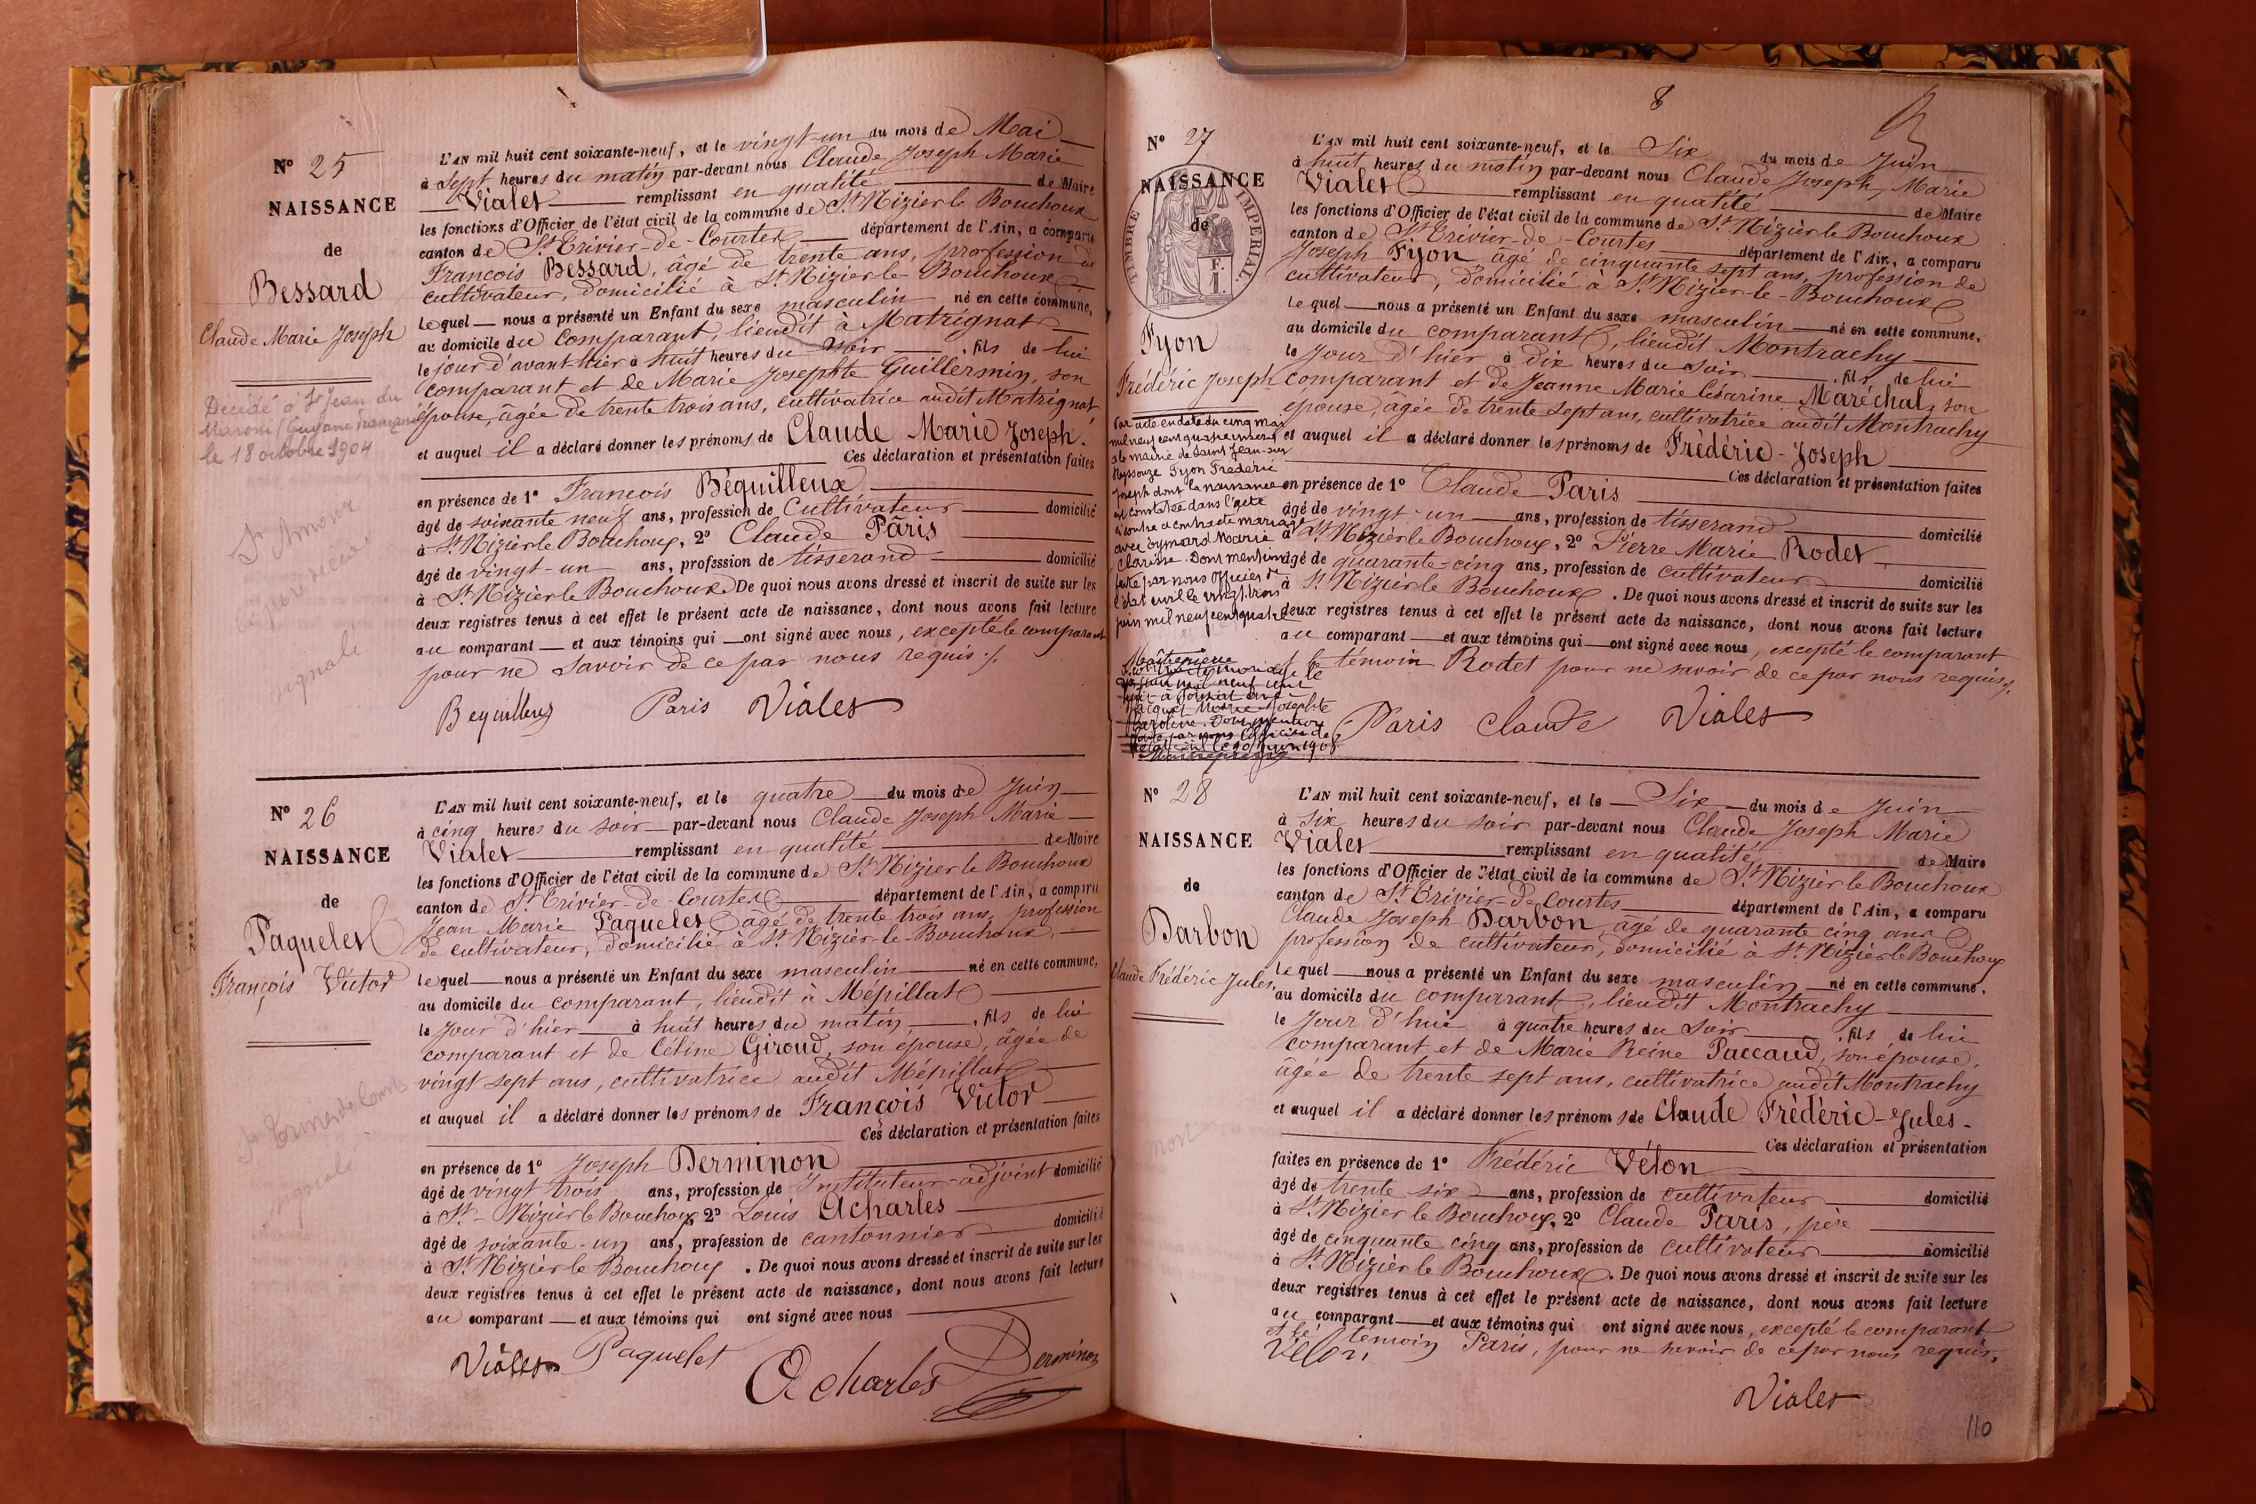 N° 25
NAISSANCE
de
Bessard
Claude Marie Joseph
Décédé à St Jean du
Maroni (Guyane française)
le 18 octobre 1904
St Amour
signalé
L'AN mil huit cent soixante-neuf, et le vingt-un du mois de Mai
à sept heures du matin par-devant nous Claude Joseph Marie
Vialet remplissant en qualité de Maire
les fonctions d'Officier de l'état civil de la commune de St Nizier le Bouchoux
canton de St Trivier-de-Courtes département de l'Ain, a comparu
François Bessard, âgé de trente ans, profession de
cultivateur, domicilié à St Nizier-le-Bouchoux
Lequel nous a présenté un Enfant du sexe masculin né en cette commune,
au domicile du comparant, lieudit à Matrignat
le jour d'avant hier à huit heures du soir , fils de lui
comparant et de Marie Josephte Guillermin, son
épouse, âgée de trente trois ans, cultivatrice audit Matrignat
et auquel il a déclaré donner les prénoms de Claude Marie Joseph.
Ces déclaration et présentation faites
en présence de 1° François Béquilleux
âgé de soixante neuf ans, profession de cultivateur domicilié
à St Nizier le Bouchoux, 2° Claude Pâris
âgé de vingt-un ans, profession de tisserand domicilié
à St Nizier le Bouchoux De quoi nous avons dressé et inscrit de suite sur les
deux registres tenus à cet effet le présent acte de naissance, dont nous avons fait lecture
au comparant et aux témoins qui ont signé avec nous, excepté le comparant
pour ne savoir de ce par nous requis ./.
Bequilleux Paris Vialet
N° 26
NAISSANCE
de
Paquelet
François Victor
signalé
L'AN mil huit cent soixante-neuf, et le quatre du mois de Juin
à cinq heures du soir par-devant nous Claude Joseph Marie
Vialet remplissant en qualité de Maire
les fonctions d'Officier de l'état civil de la commune de St Nizier le Bouchoux
canton de St Trivier-de-Courtes département de l'Ain, a comparu
Jean Marie Paquelet âgé de trente trois ans, profession
de cultivateur, domicilié à St Nizier-le-Bouchoux
Lequel nous a présenté un Enfant du sexe masculin né en cette commune,
au domicile du comparant, lieudit à Mépillat
le jour d'hier à huit heures du matin, , fils de lui
comparant et de Céline Giroud, son épouse, âgée de
vingt sept ans, cultivatrice audit Mépillat
et auquel il a déclaré donner les prénoms de François Victor
Ces déclaration et présentation faites
en présence de 1° Joseph Derminon
âgé de vingt trois ans, profession de Instituteur-adjoint domicilié
à St-Nizier le Bouchoux 2° Louis Acharles
âgé de soixante-un ans, profession de cantonnier domicilié
à St Nizier le Bouchoux . De quoi nous avons dressé et inscrit de suite sur les
deux registres tenus à cet effet le présent acte de naissance, dont nous avons fait lecture
au comparant et aux témoins qui ont signé avec nous
Vialet Paquelet Acharles Derminon
8
N° 27
NAISSANCE
de
TIMBRE IMPERIAL
Fyon
Frédéric Joseph
Par acte en date du cinq mai
mil neuf cent quatre inscrit
à la mairie de Saint Jean-sur
Reyssouze Fyon Frédéric
Joseph dont la naissance
est constatée dans l'acte
ci contre a contracté mariage
avec Eymard Marie
Clarisse. Dont mention
faite par nous officier de
l'état civil le vingt trois
juin mil neuf cent quatre
L'AN mil huit cent soixante-neuf, et le Six du mois de Juin
à huit heures du matin par-devant nous Claude Joseph, Marie
Vialet remplissant en qualité de Maire
les fonctions d'Officier de l'état civil de la commune de St Nizier le Bouchoux
canton de St Trivier-de-Courtes département de l'Ain, a comparu
Joseph Fyon âgé de cinquante sept ans, profession de
cultivateur, domicilié à St Nizier-le-Bouchoux
Lequel nous a présenté un Enfant du sexe masculin né en cette commune,
au domicile du comparant, lieudit Montrachy
le Jour d'hier à dix heures du soir , fils de lui
comparant et de Jeanne Marie Césarine Maréchal, son
épouse, âgée de trente sept ans, cultivatrice audit Montrachy
et auquel il a déclaré donner les prénoms de Frédéric-Joseph
Ces déclaration et présentation faites
en présence de 1° Claude Paris
âgé de vingt-un ans, profession de tisserand domicilié
à St Nizier le Bouchoux, 2° Pierre Marie Rodet
âgé de quarante-cinq ans, profession de cultivateur domicilié
à St Nizier le Bouchoux . De quoi nous avons dressé et inscrit de suite sur les
deux registres tenus à cet effet le présent acte de naissance, dont nous avons fait lecture
au comparant et aux témoins qui ont signé avec nous, excepté le comparant
et le témoin Rodet pour ne savoir de ce par nous requis ./.
Paris Claude Vialet
N° 28
NAISSANCE
de
Darbon
Claude Frédéric Jules
mort
L'AN mil huit cent soixante-neuf, et le Six du mois de Juin
à six heures du soir par-devant nous Claude Joseph Marie
Vialet remplissant en qualité de Maire
les fonctions d'Officier de l'état civil de la commune de St Nizier le Bouchoux
canton de St Trivier-de-Courtes département de l'Ain, a comparu
Claude Joseph Darbon, âgé de quarante cinq ans
profession de cultivateur, domicilié à St Nizier le Bouchoux
Lequel nous a présenté un Enfant du sexe masculin né en cette commune.
au domicile du comparant, lieudit Montrachy
le Jour d'hui à quatre heures du soir , fils de lui
comparant et de Marie Reine Paccaud, son épouse,
âgée de trente sept ans, cultivatrice audit Montrachy
et auquel il a déclaré donner les prénoms de Claude Frédéric-Jules.
Ces déclaration et présentation
faites en présence de 1° Frédéric Vélon
âgé de trente six ans, profession de cultivateur domicilié
à St Nizier le Bouchoux, 2° Claude Paris, père
âgé de cinquante cinq ans, profession de cultivateur domicilié
à St Nizier le Bouchoux. De quoi nous avons dressé et inscrit de suite sur les
deux registres tenus à cet effet le présent acte de naissance, dont nous avons fait lecture
au comparant et aux témoins qui ont signé avec nous, excepté le comparant
et le témoin Paris, pour ne savoir de ce par nous requis.
Vélon, Vialet
110